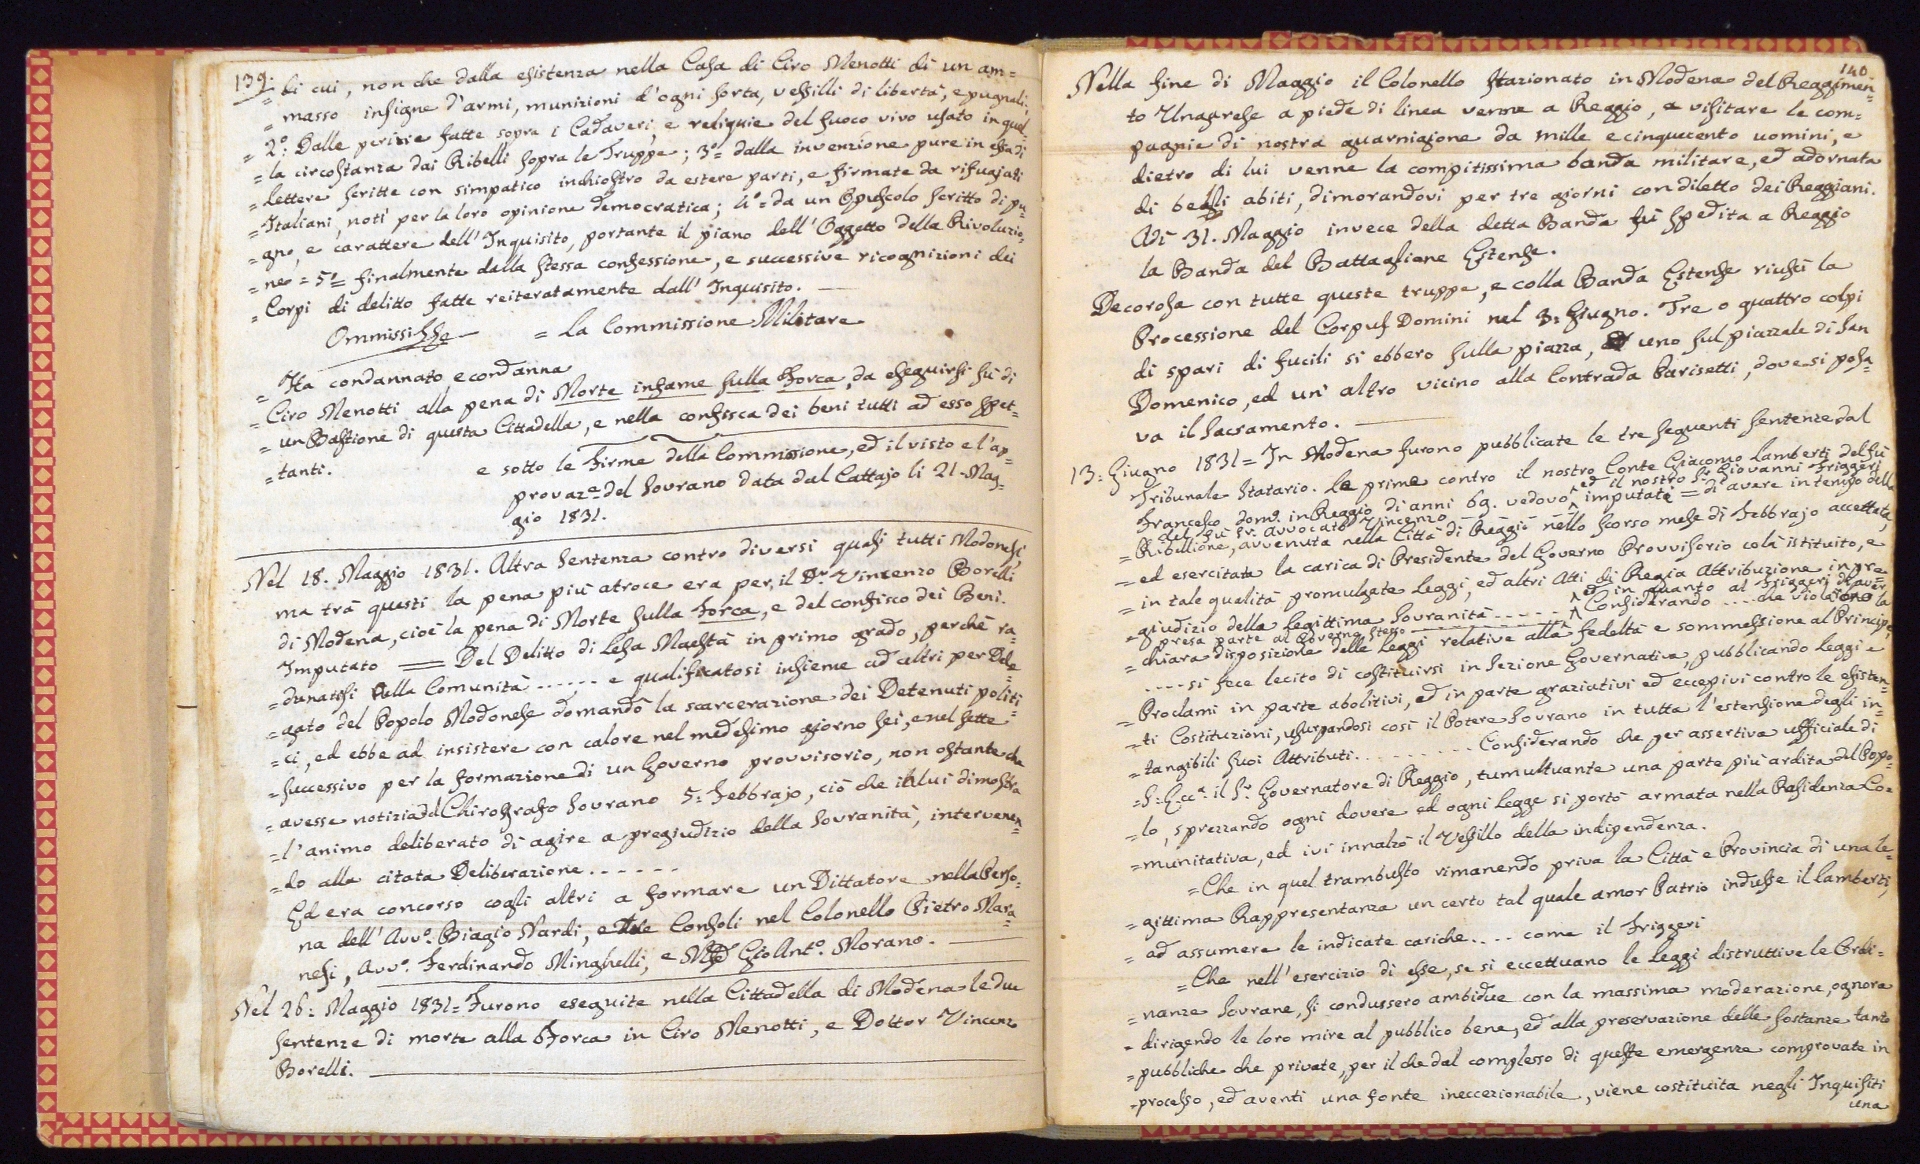 139.
= di cui, non che dalla esistenza nella Casa di Ciro Menotti di un am=
= masso insigne d'armi, munizioni d'ogni sorta, vessilli di libertà, e pugnali;
= 2.° Dalle perizie fatte sopra i Cadaveri, e reliquie del fuoco vivo usato in quel=
= la circostanza dai Ribelli sopra le Truppe; 3.° dalla invenzione pure in essa di
= Lettere scritte con simpatico inchiostro da estere parti, e firmate da rifugiati
= Italiani, noti per la loro opinione democratica; 4.° = da un Opuscolo scritto di pu=
= gno, e carattere dell'Inquisito, portante il piano dell'Oggetto della Rivoluzio=
= ne = 5.° finalmente dalla stessa confessione, e successive ricognizioni dei
= Corpi di delitto fatte reiteratamente dall'Inquisito. —
Ommissis — = La Commissione Militare
= Ha condannato e condanna
= Ciro Menotti alla pena di Morte infame sulla Forca, da eseguirsi su di
= un Bastione di questa Cittadella, e nella confisca dei beni tutti ad esso spet=
= tanti.
e sotto le Firme della Commissione, ed il visto e l'ap=
provaz.e del Sovrano data dal Cattajo li 21. Mag=
gio 1831.
Nel 18. Maggio 1831. Altra Sentenza contro diversi quasi tutti Modonesi,
ma trà questi la pena più atroce era per il Dr. Vincenzo Borelli
di Modena, cioè la pena di Morte sulla Forca, e del confisco dei Beni.
Imputato == Del Delitto di Lesa Maestà in primo grado, perchè ra=
= dunatosi nella Comunità ...... e qualificatosi insieme ad altri per Dele=
= gato del Popolo Modonese domandò la scarcerazione dei Detenuti politi=
= ci, ed ebbe ad insistere con calore nel medesimo giorno sei, e nel sette
= successivo per la formazione di un Governo provvisorio, non ostante che
= avesse notizia del Chirografo Sovrano 5: Febbrajo, ciò che in lui dimostra
= l'animo deliberato di agire a pregiudizio della Sovranità, intervenen=
= do alla citata Deliberazione ......
Ed era concorso cogli altri a formare un Dittatore nella Perso=
na dell'Avv.° Biagio Nardi, e tre Consoli nel Colonello Pietro Mara=
nesi, Avv.° Ferdinando Minghelli, e Gio Ant.° Morano. —
Nel 26: Maggio 1831 = Furono eseguite nella Cittadella di Modena le due
sentenze di morte alla Forca in Ciro Menotti, e Dottor Vincenzo
Borelli. —
140.
Nella fine di Maggio il Colonello stazionato in Modena del Reggimen=
to Ungarese a piede di linea venne a Reggio, a visitare le com=
pagnie di nostra guarnigione da mille e cinquecento uomini, e
dietro di lui venne la compitissima banda militare, ed adornata
di belli abiti, dimorandovi per tre giorni con diletto dei Reggiani.
Adì 31. Maggio invece della detta Banda fù spedita a Reggio
la Banda del Battaglione Estense.
Decorosa con tutte queste truppe, e colla Banda Estense riuscì la
Processione del Corpus Domini nel 3: Giugno. Tre o quattro colpi
di spari di fucili si ebbero sulla piazza, uno sul piazzale di San
Domenico, ed un'altro vicino alla Contrada Parisetti, dove si posa=
va il Sacramento. —
13: Giugno 1831 = In Modena furono pubblicate le tre seguenti Sentenze dal
Tribunale Statario. Le prime contro il nostro Conte Giacomo Lamberti del fù
ed il nostro Sr. Giovanni Friggeri
Francesco dom.° in Reggio di anni 69. vedovo imputati = di avere in tempo della
del fù Sr. Avvocato Vincenzo
= Ribellione, avvenuta nella Città di Reggio nello scorso mese di Febbrajo accettata,
= ed esercitata la carica di Presidente del Governo Provvisorio colà istituito, e
= in tale qualità promulgate Leggi, ed altri Atti di Regia Attribuzione in pre=
ed in quanto al Friggeri di aver
= giudizio della Legittima Sovranità ..... Considerando .... che violarono la
presa parte al Governo stesso
= chiara disposizione delle Leggi relative alla fedeltà e sommessione al Principe,
.... si fece lecito di costituirsi in Sezione Governativa, pubblicando Leggi e
= Proclami in parte abolitivi, ed in parte graziativi ed eccepivi contro le esisten=
= ti Costituzioni, usurpandosi così il Potere Sovrano in tutta l'estensione degli in=
= tangibili suoi Attributi ........ Considerando che per assertiva ufficiale di
= S: Ecc.a il Sr. Governatore di Reggio, tumultuante una parte più ardita del Popo=
= lo, sprezzando ogni dovere ed ogni Legge si portò armata nella Residenza Co=
= munitativa, ed ivi innalzò il Vessillo della indipendenza.
= Che in quel trambusto rimanendo priva la Città e Provincia di una le=
= gittima Rappresentanza un certo tal quale amor Patrio indusse il Lamberti,
= ad assumere le indicate cariche .... come il Friggeri
= Che nell'esercizio di esse, se si eccettuano le Leggi distruttive le Ordi=
= nanze Sovrane, si condussero ambidue con la massima moderazione, ognora
= dirigendo le loro mire al pubblico bene, ed alla preservazione delle sostanze tanto
= pubbliche che private, per il che dal complesso di queste emergenze comprovate in
= processo, ed aventi una fonte ineccezionabile, viene costituita negli Inquisiti
una